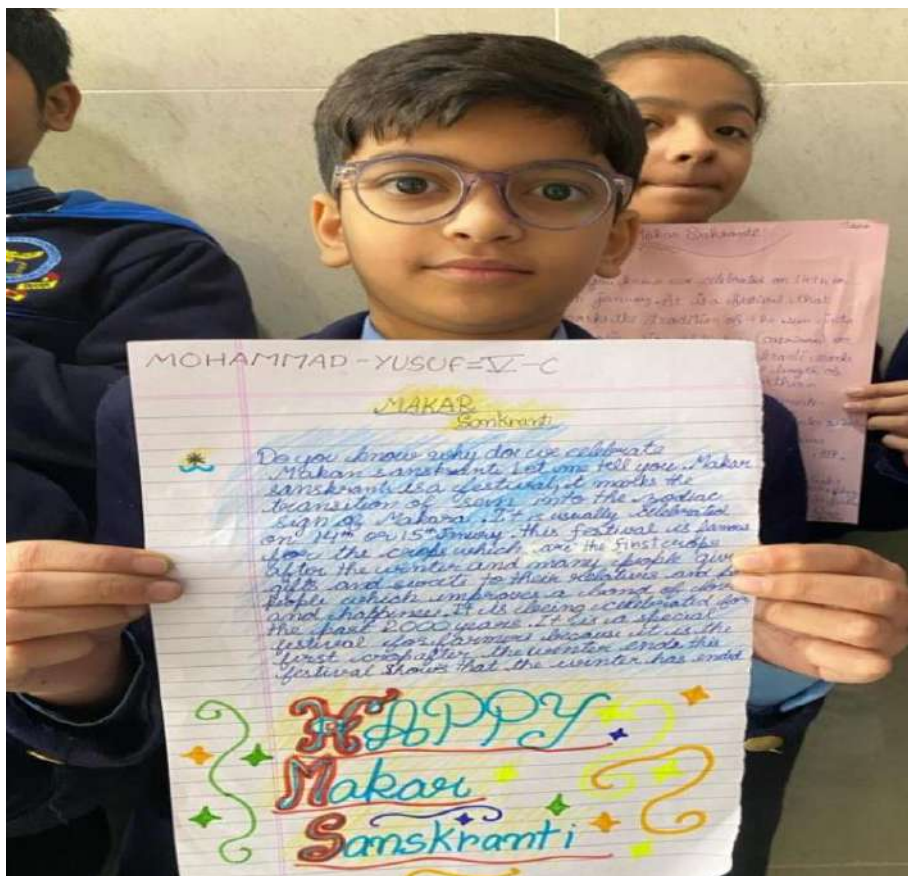 MOHAMMAD - YUSUF = V - C
MAKAR
Sankranti
Do you know why do we celebrate
Makar sanskranti Let me tell you Makar
sanskranti is a festival, it marks the
transition of sun into the zodiac
sign of Makara. It is usually celebrated
on 14th or 15th January. this festival is famous
for the crops which are the first crops
after the winter and many people give
gifts and sweets to their relatives and
people which improves a bond of
and happiness. It is being celebrated for
the past 2000 years. It is a special
festival for farmers because it is the
first crop after the winter ends this
festival shows that the winter has ended
HAPPY
Makar
Sanskranti
Makar Sakranti
celebrated on 14th or
January. It is a festival that
tradition of the sun into
length of